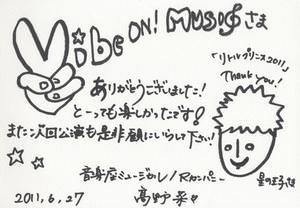 Vibe ON! MUSICさま
「リトルプリンス2011」
Thank you!
ありがとうございました!
とーっても楽しかったです!
また次回公演も是非観にいらして下さい!
音楽座ミュージカル/Rカンパニー
高野菜々
星の王子さま
2011.6.27